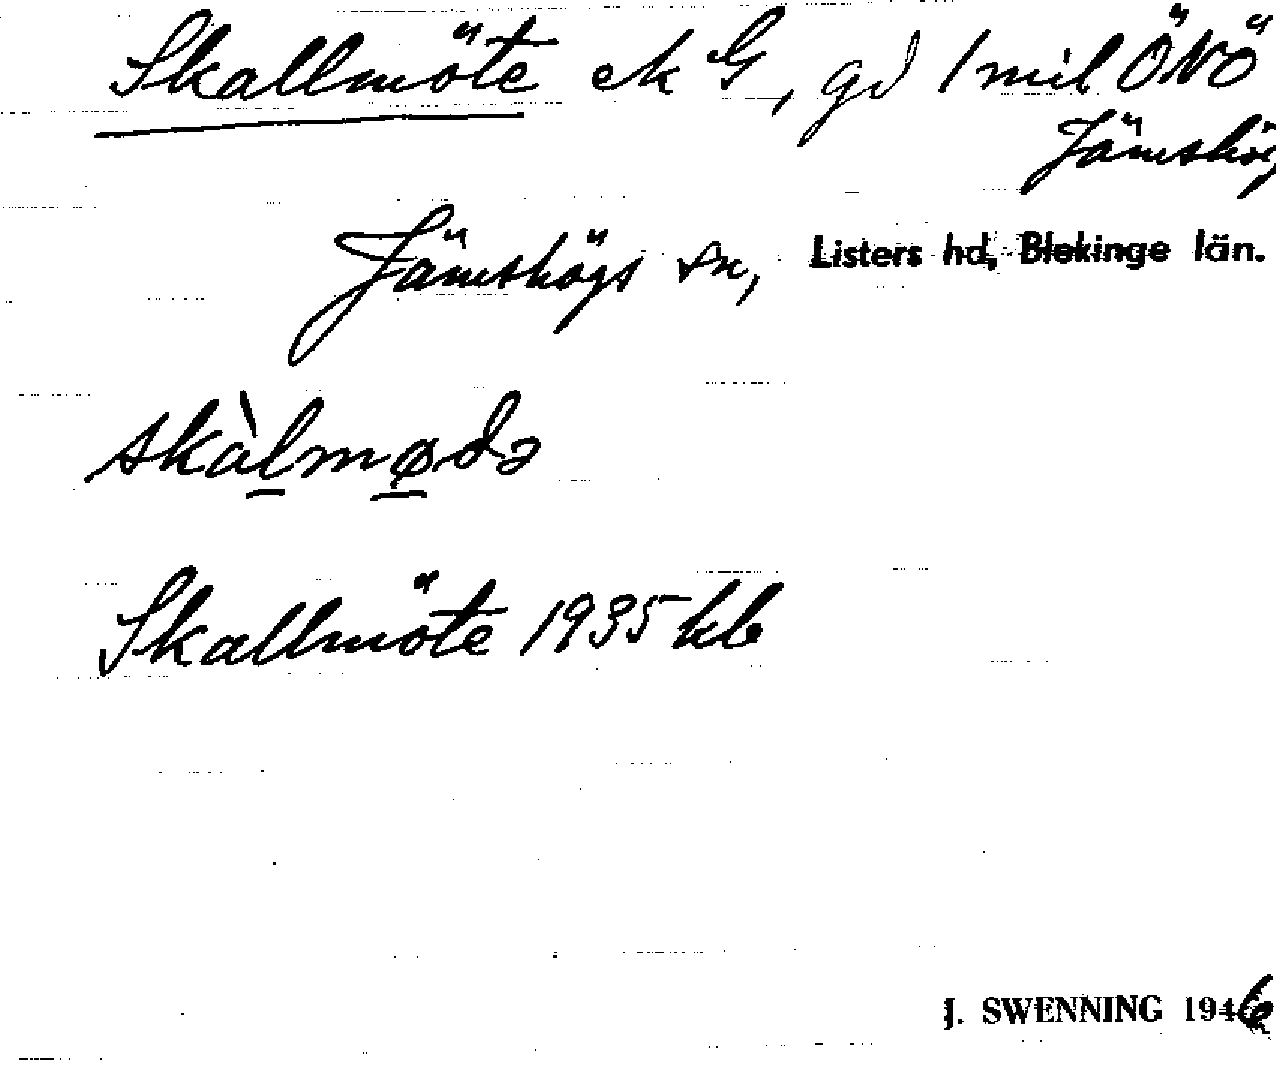 Skallmöte ek G, gd 1 mil ÖNÖ
Jämshög
Jämshögs sn, Listers hd, Blekinge län.
skàlmødə
Skallmöte 1935 kb
J. SWENNING 1946